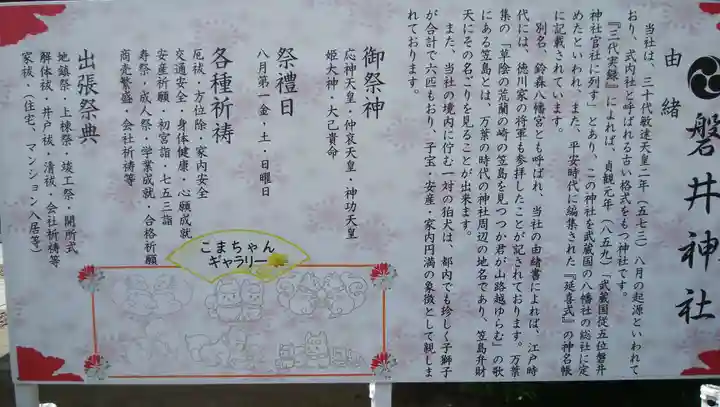 磐井神社
由緒
当社は、三十代敏達天皇二年（五七三）八月の起源といわれて
おり、式内社と呼ばれる古い格式をもつ神社です。
『三代実録』によれば、貞観元年（八五九）「武蔵国従五位磐井
神社官社に列す」とあり、この神社を武蔵国の八幡社の総社に定
めたといわれ、また、平安時代に編集された『延喜式』の神名帳
に記載されています。
別名、鈴森八幡宮とも呼ばれ、当社の由緒書によれば、江戸時
代には、徳川家の将軍も参拝したことが記されております。万葉
集の「草陰の荒藺の崎の笠島を見つつか君が山路越ゆらむ」の歌
にある笠島とは、万葉の時代の神社周辺の地名であり、笠島弁財
天にその名ごりを見ることが出来ます。
また、当社の境内に佇む一対の狛犬は、都内でも珍しく子獅子
が合計で六匹もおり、子宝・安産・家内円満の象徴として親しま
れております。
御祭神
応神天皇・仲哀天皇・神功天皇
姫大神・大己貴命
祭禮日
八月第一金・土・日曜日
各種祈祷
厄祓・方位除・家内安全
交通安全・身体健康・心願成就
安産祈願・初宮詣・七五三詣
寿祭・成人祭・学業成就・合格祈願
商売繁盛・会社祈祷等
出張祭典
地鎮祭・上棟祭・竣工祭・開所式
解体祓・井戸祓・清祓・会社祈祷等
家祓・（住宅、マンション入居等）
こまちゃん
ギャラリー